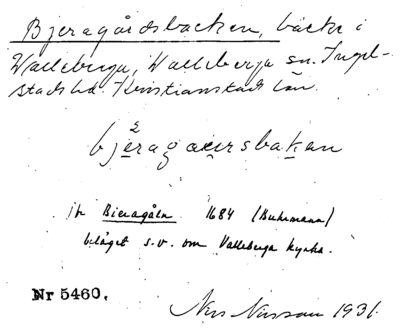 Bjeragårdsbacken, bäck i
Walleberga, Walleberga sn. Ingel-
stads hd. Kristianstads län.
bjèragaursbakan
jr Bieragåln 1684 (Buhrmann)
beläget s.v. om Valleberga kyrka.
Nr 5460.
Nils Nilsson 1931.